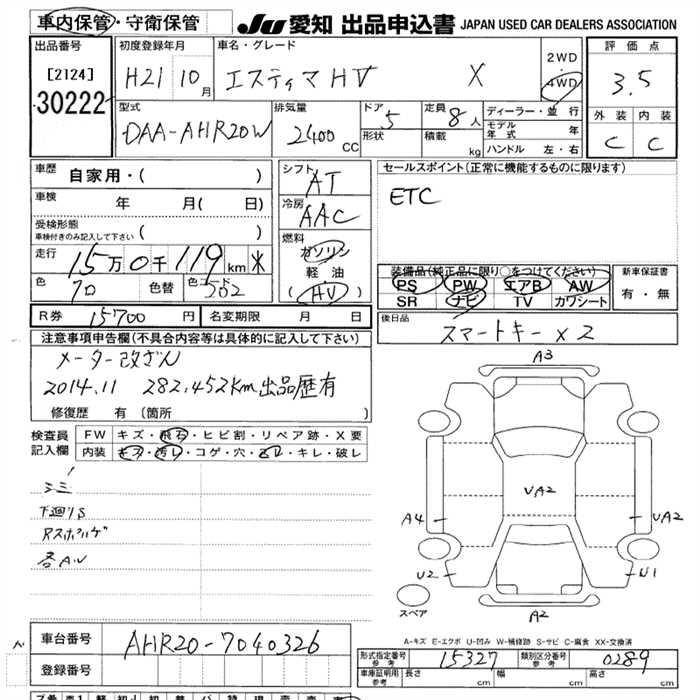 車内保管・守衛保管 JU 愛知 出品申込書 JAPAN USED CAR DEALERS ASSOCIATION
出品番号 初度登録年月 車名・グレード 2WD 評価点
[2124] H21 10月 エスティマHV X 4WD 3.5
30222
型式 排気量 ドア 定員 ディーラー・並行 外装 内装
DAA-AHR20W 2400CC 5 8人 モデル年式 年 C C
形状 積載 kg ハンドル 左・右
車歴 自家用・( ) シフト AT セールスポイント(正常に機能するものに限ります)
車検 年 月( 日) 冷房 AAC ETC
受検形態
車検付きのみ記入して下さい ( )
燃料
走行 15万0千119km ガソリン
軽油 装備品(純正品に限り○をつけてください) 新車保証書
色 70 色替 色コード 502 (HV) PS PW エアB AW 有・無
SR ナビ TV カワシート
R券 15700円 名変期限 月 日 後日品
スマートキー×2
注意事項申告欄(不具合内容等は具体的に記入して下さい)
メーター改ざん
2014.11 282,452Km出品歴有
修復歴 有 (箇所 )
A3
検査員 FW キズ・飛石・ヒビ割・リペア跡・X要
記入欄 内装 キズ・汚レ・コゲ・穴・
・キレ・破レ
UA2
下廻りS
A4 UA2
各AU
U2 U1
スペア
A2
A-キズ E-エクボ U-凹み W-補修跡 S-サビ C-腐食 XX-交換済
車台番号 AHR20-7040326
形式指定番号 参考 15327 類別区分番号 参考 0289
登録番号 車庫証明用 参考 長さ cm 幅 cm 高さ cm